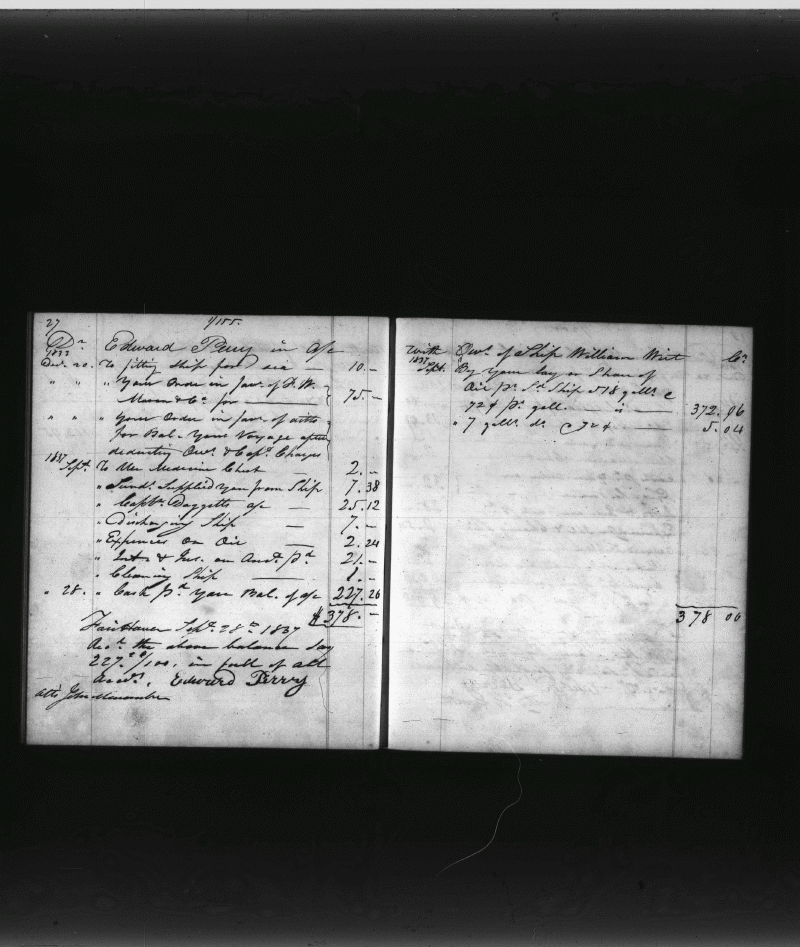 27 1/155.
Dr Edward Perry in a/c
1833
Decr 20. To fitting Ship for sea — 10.–
" " " Your Order in favr of
& Co. for — 75.–
" " " your Order in favr of
for Bal. Your Voyage after
deducting Owr. & Capt. Charges
1837
Sept. To Use Medicine Chest — 2.–
" Sunds. Supplied you from Ship 7.38
" Captn. Daggetts a/c — 25.12
" Discharging Ship — 7.–
" Expences on Oil — 2.24
" Int. & Ins. on Amt. pd 21.–
" Cleaning Ship — 1.–
" 28. " Cash pd Your Bal. of a/c 227.26
$378.–
Fair Haven Sept. 28th 1837
Recd the above balance say
227 26/100, in full of all
Edward Perry
John
With Owrs of Ship William Wirt Cr
1837
Sept. By Your lay or Share of
Oil pr Sd Ship 518 galls. @
72¢ pr gall. — " — 372.96
" 7 galls. do. @ 72¢ — 5.04
378 00